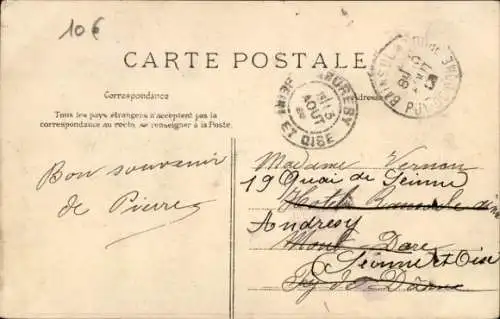 10€
CARTE POSTALE
Correspondance
Tous les pays étrangers n'acceptent pas la
correspondance au recto, se renseigner à la Poste.
Bon souvenir
de Pierre
ET OISE
AOUT
PUY DE DOME
Madame Vernon
19 Quai de Seine
Hotel
Andresy
Mont Dore
Seine et Oise
Puy de Dôme